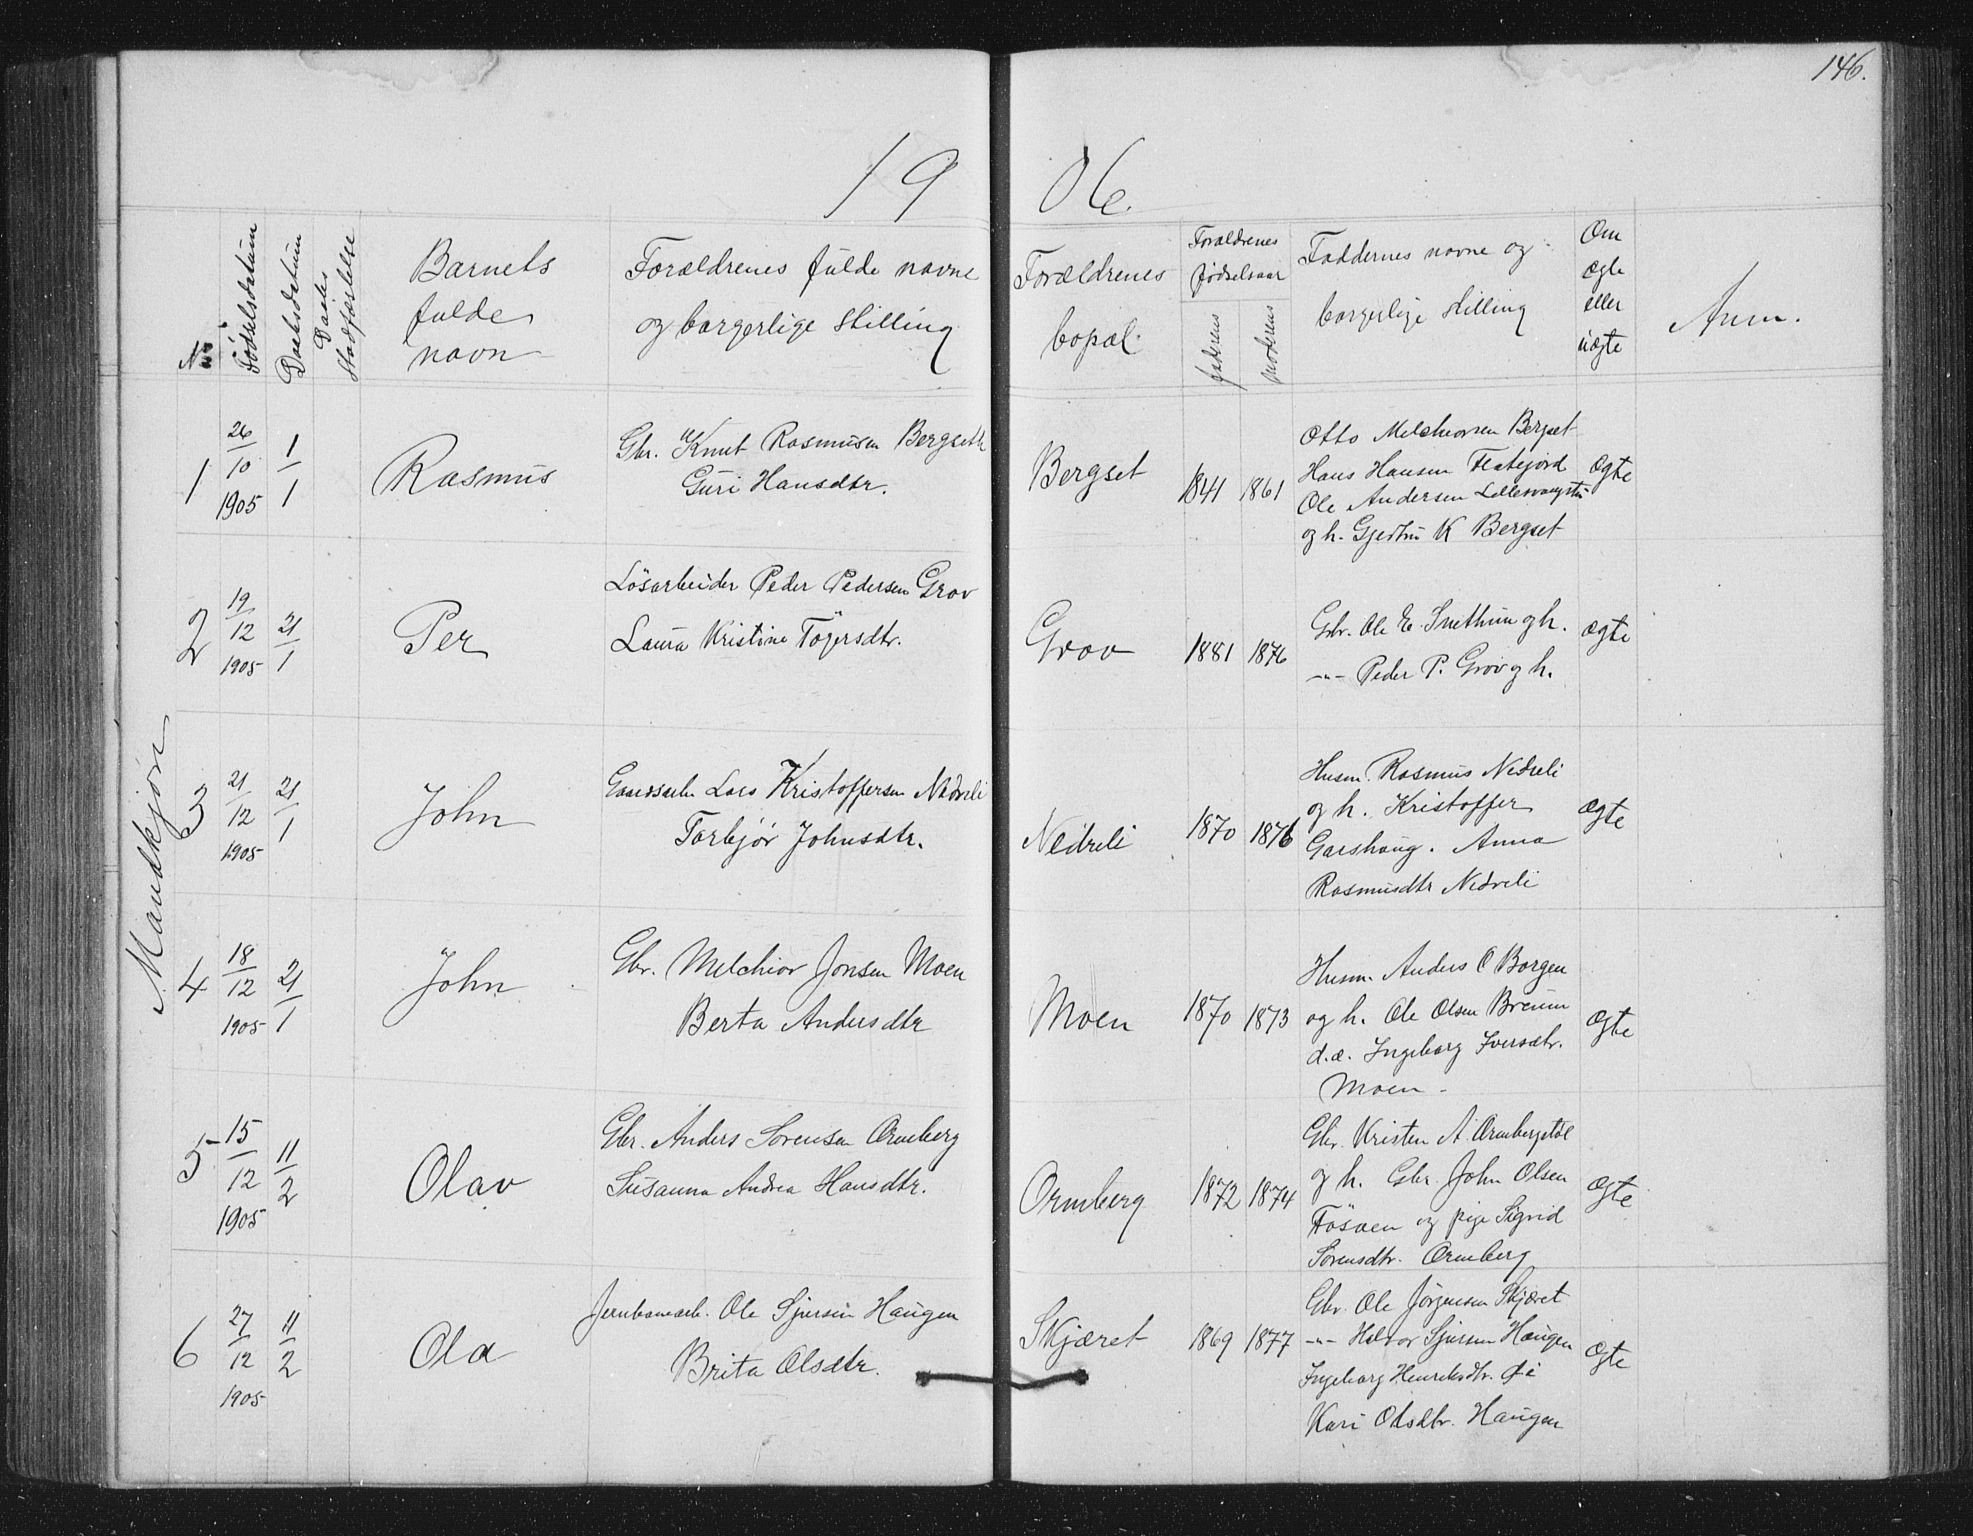 146.
19 06.
Mandkjøn
No
Fødselsdatum
Daabsdatum
Daabs Stadfæstelse
Barnets
fulde
navn
Forældrenes fulde navne
og borgerlige stilling
Forældrenes
bopæl.
Forældrenes
fødselsaar
faderens
moderens
Faddernes navne og
borgerlige stilling
Om
ægte
eller
uægte
Anm.
1
26/10 1905
1/1
Rasmus
Gbr. Knut Rasmusen Bergseth
Guri Hansdtr.
Bergset
1841
1861
Otto Melchiorsen Bergset
Hans Hansen Flatejord
Ole Andersen
og h. Gjertru K Bergset
Ægte
2
19/12 1905
21/1
Per
Lösarbeider Peder Pedersen Grov
Laura Kristine Tögersdtr.
Grov
1881
1876
Gbr. Ole E. Snethun og h.
-"- Peder P. Grov og h.
ægte
3
21/12 1905
21/1
John
Gaardsarb. Lars Kristoffersen Nedreli
Torbjør Johnsdtr.
Nedreli
1870
1876
Husm. Rasmus Nedreli
og h. Kristoffer
Garshaug. Anna
Rasmusdtr Nedreli
ægte
4
18/12 1905
21/1
John
Gbr. Melchior Jonsen Moen
Berta Andersdtr
Moen
1870
1873
Husm. Anders O Borgen
og h. Ole Olsen Breum
d.æ. Ingeborg Iversdtr.
Moen -
Ægte
5
15/12 1905
11/2
Olav
Gbr. Anders Sorensen Ormberg
Susanna Andrea Hansdtr.
Ormberg
1872
1874
Gbr. Kristen A. Ormbergstøl
og h. Gbr. John Olsen
og pige Sigrid
Sorensdtr. Ormberg
Ægte
6
27/12 1905
11/2
Ola
Jernbanearb. Ole Sjursen Haugen
Brita Olsdtr.
Skjæret
1869
1877
Gbr. Ole Jörgensen Skjæret
-"- Halvor Sjursen Haugen
Ingeborg Henriksdtr. Øi
Kari Olsdtr. Haugen
Ægte